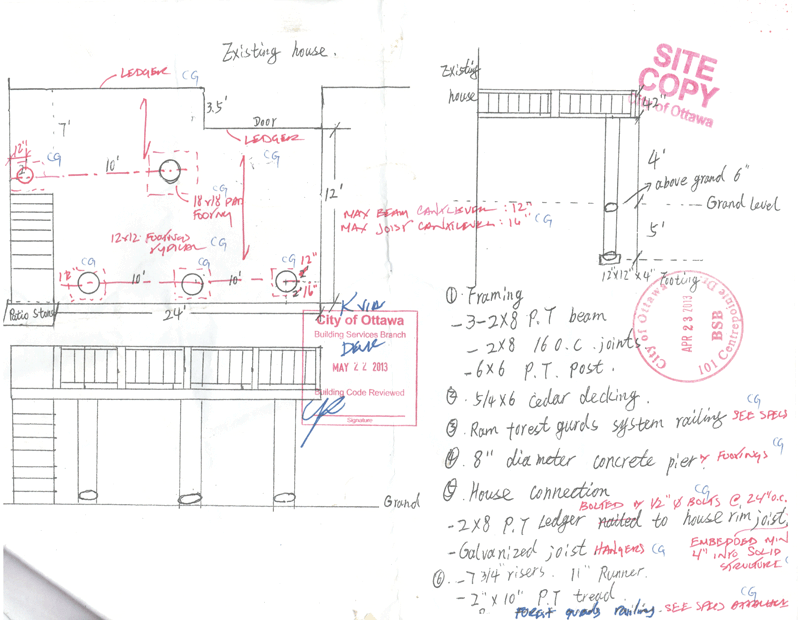 Existing house.
LEDGER CG
3.5'
7'
Door
LEDGER
12"
CG
10'
CG
CG
12'
18x18 PAD
FOOTING
CG
12x12 FOOTINGS
TYPICAL CG
CG
CG
CG
12"
12"
10'
10'
2'
2'
16"
Patio Stone
24'
MAX BEAM CANTILEVER : 12"
MAX JOIST CANTILEVER : 16" CG
City of Ottawa
Building Services Branch
MAY 22 2013
Building Code Reviewed
Signature
Grand
Existing
house
SITE
COPY
City of Ottawa
42"
4'
above grand 6"
Grand Level
5'
12"x12"x4" Footing
City of Ottawa
APR 23 2013
BSB
101 Centrepointe Dr
① Framing
- 3-2x8 P.T beam
- 2x8 16 O.C. joints
- 6x6 P.T. Post.
② 5/4x6 Cedar decking.
CG
③ Ram forest gurds system railing SEE SPECS
④ 8" diameter concrete pier & FOOTINGS CG
⑤ House connection CG
BOLTED W 1/2" Ø BOLTS @ 24" O.C.
- 2x8 P.T Ledger Nailed to house rim joist
- Galvanized joist HANGERS CG
EMBEDDED MIN
4" INTO SOLID
STRUCTURE
⑥ - 7 3/4" risers. 11" Runner.
- 2" x 10" P.T tread. CG
Forest guards railing - SEE SPECS ATTACHED